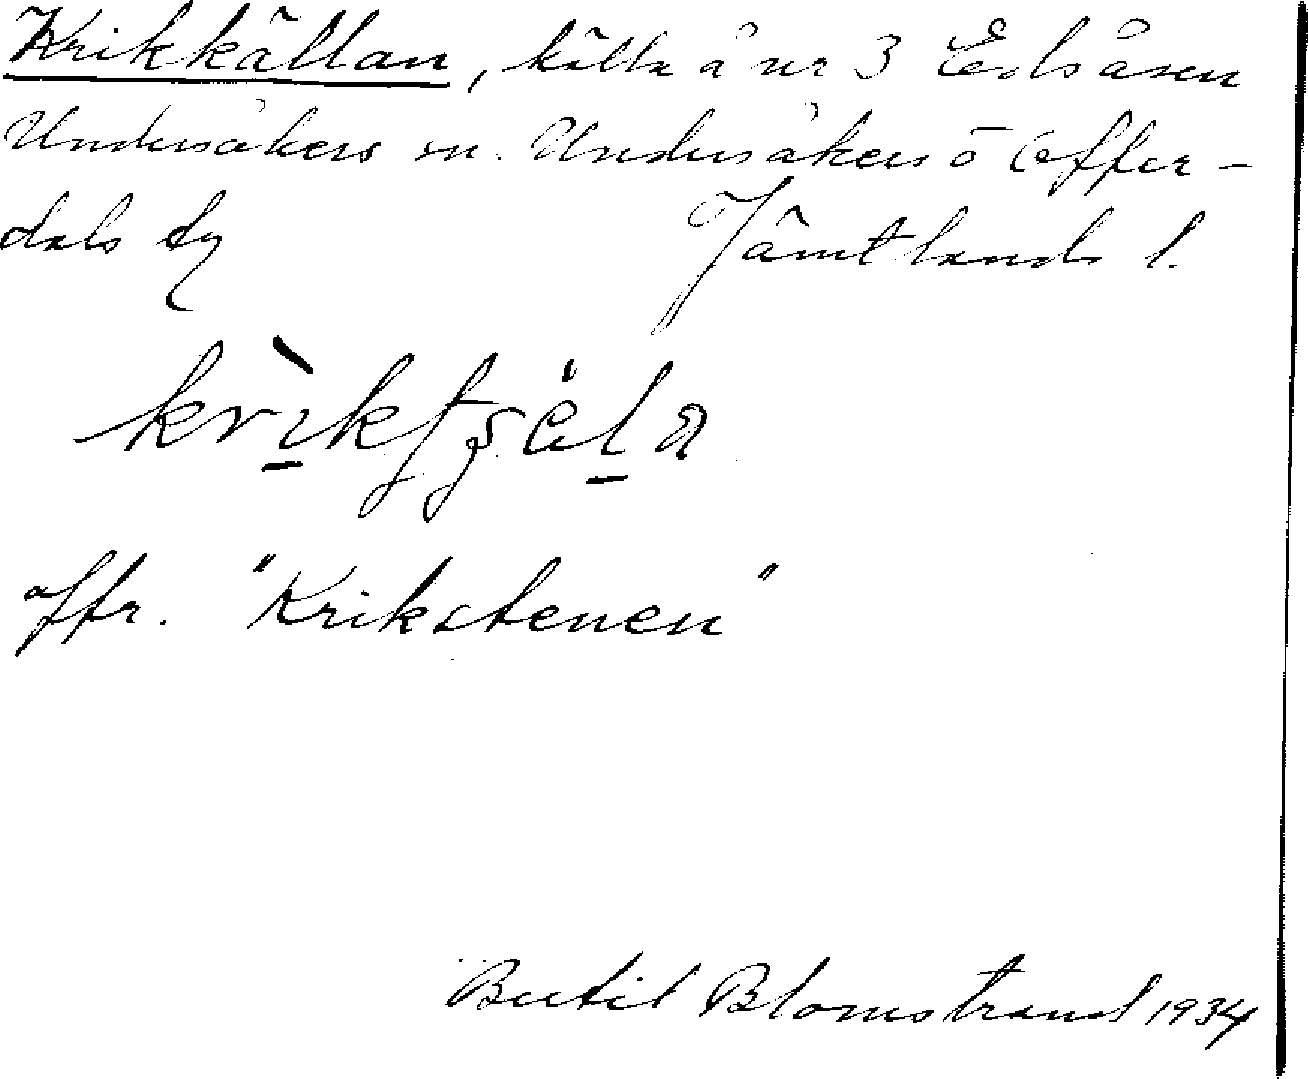 Krikkällan, källa å nr 3 Edsåsen
Undersåkers sn. Undersåkers o Offer-
dals tg
Jämtlands l.
jfr. "Krikstenen"
Bertil Blomstrand 1934